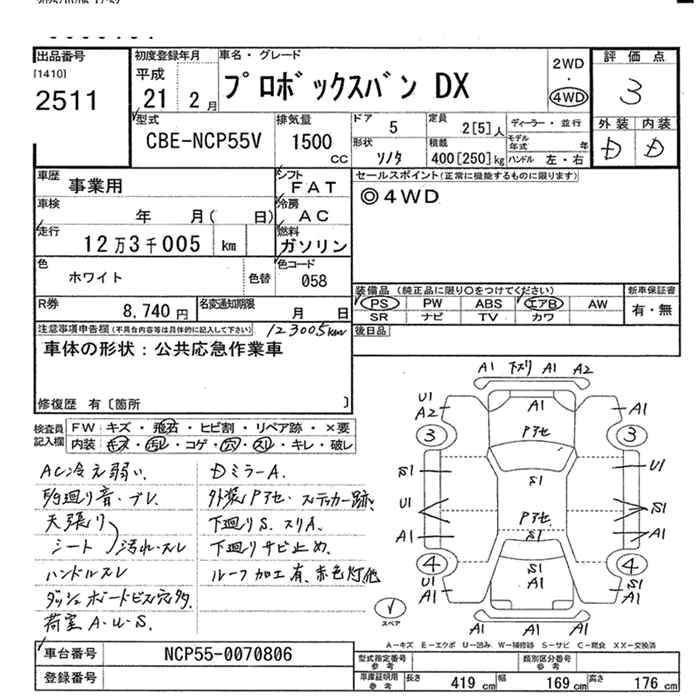 出品番号
[1410]
2511
初度登録年月
平成
21 2月
車名・グレード
プロボックスバン DX
2WD
・
4WD
評価点
3
外装 内装
D D
型式
CBE-NCP55V
排気量
1500
cc
ドア
5
形状
ソノタ
定員
2[5]人
積載
400[250]kg
ディーラー・並行
モデル年式 年
ハンドル 左・右
車歴
事業用
シフト
FAT
セールスポイント(正常に機能するものに限ります)
◎4WD
車検
年 月( 日)
冷房
AC
走行
12万3千005 km
燃料
ガソリン
色
ホワイト
色替
色コード
058
R券
8,740円
名変通知期限
月 日
装備品(純正品に限り○をつけてください)
PS PW ABS エアB AW
SR ナビ TV カワ
新車保証書
有・無
後日品
注意事項申告欄(不具合内容等は具体的に記入して下さい)
123005km
車体の形状:公共応急作業車
修復歴 有〔箇所 〕
検査員記入欄
FW キズ・飛石・ヒビ割・リペア跡・×要
内装 キズ・汚れ・コゲ・穴・スレ・キレ・破レ
AC冷え弱い.
天張り
シート 汚れ・スレ
ハンドルスレ
ダッシュボードビス穴多
荷室A・U・S.
DミラーA.
外装Pアセ・ステッカー跡.
下廻りS.スリA.
下廻りサビ止め.
ルーフ加工有.赤色灯他
A1 下スリ A1 A2
U1
A2
A1
A1
Pアセ
3
3
S1
S1
U1
U1
Pアセ
S1
A1
S1
A1
4
4
U1
A1
S1
A1
S1
A1
A1 A1 A1
スペア
A-キズ E-エクボ U-凹み W-補修跡 S-サビ C-腐食 XX-交換済
車台番号
NCP55-0070806
登録番号
型式指定番号
参考
類別区分番号
参考
車庫証明用
参考
長さ 419 cm 幅 169 cm 高さ 176 cm